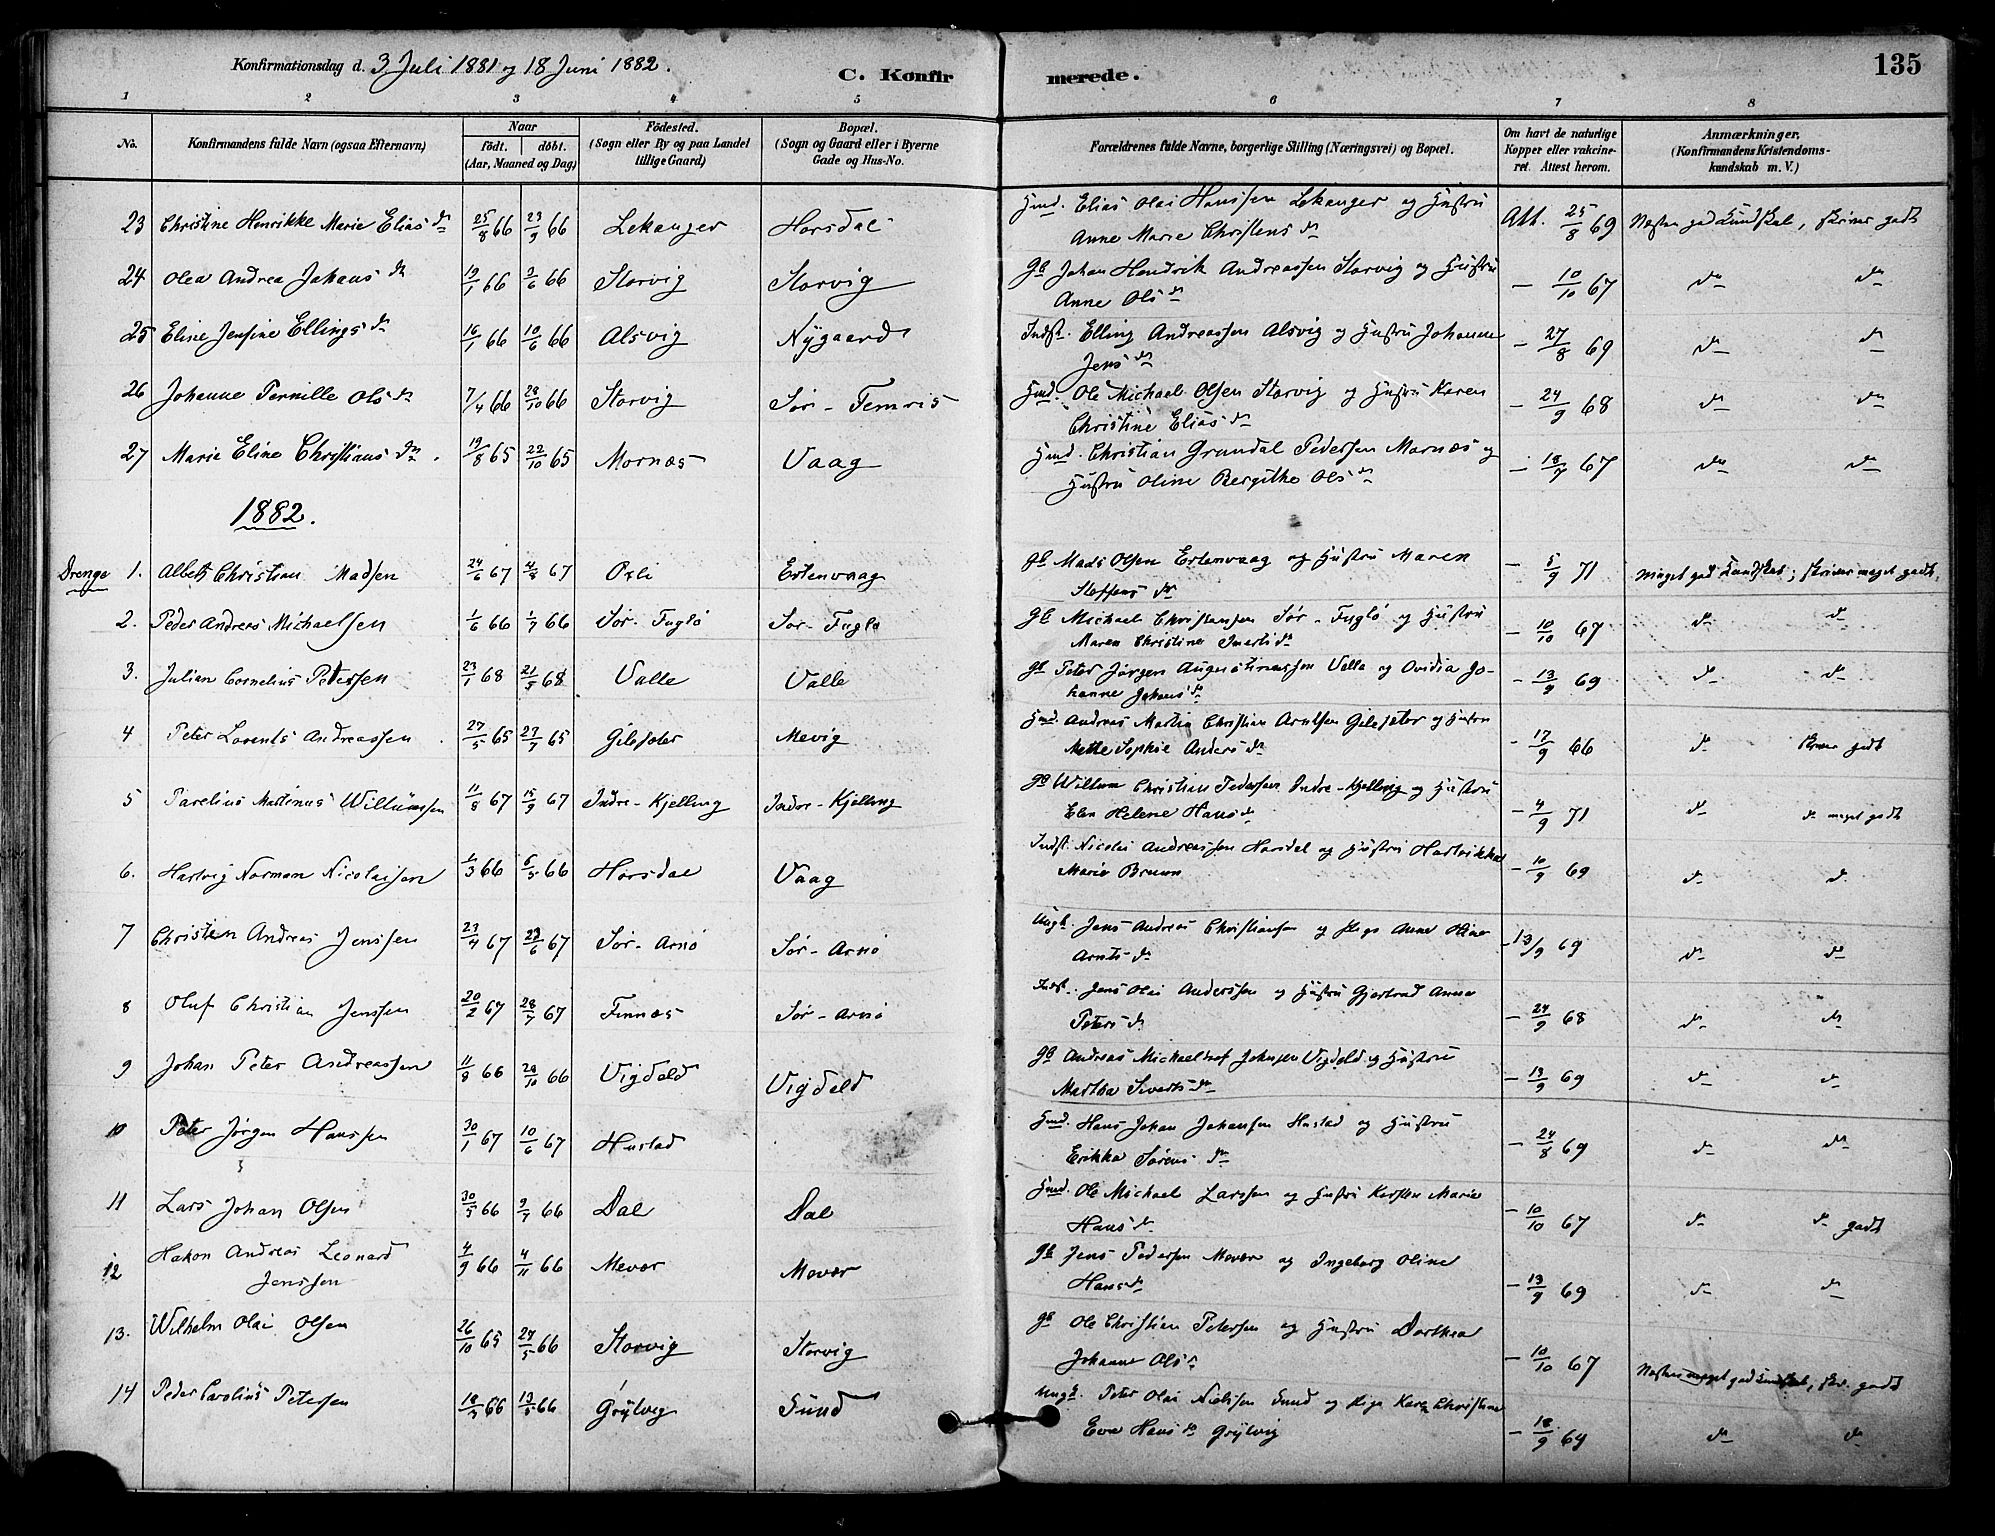 135
Konfirmationsdag d. 3 Juli 1881 og 18 Juni 1882.
C. Konfirmerede.
1 2 3 4 5 6 7 8
No. Konfirmandens fulde Navn (ogsaa Efternavn) Naar født. døbt. (Aar, Maaned og Dag) Fødested. (Sogn eller By og paa Landet tillige Gaard) Bopæl. (Sogn og Gaard eller i Byerne Gade og Hus-No. Forældrenes fulde Navne, borgerlige Stilling (Næringsvei) og Bopæl. Om havt de naturlige Kopper eller vakcineret. Attest herom. Anmærkninger. (Konfirmandens Kristendomskundskab m. V.)
23 Christine Henrikke Marie Elias dr 25/8 66 23/9 66 Lekanger Horsdal Hmd. Elias Olai Hanssen Lekanger og Hustru
Anne Marie Christens dr Att. 25/8 69 Næsten god Kundskab, skriver godt
24 Olea Andrea Johans dr 19/1 66 3/6 66 Storvig Storvig Gb Johan Hendrik Andreassen Storvig og Hustru
Anne Ols dr - 10/10 67 do do
25 Eline Jensine Ellings dr 16/1 66 10/6 66 Alsvig Nygaard Indst. Elling Andreassen Alsvig og Hustru Johanne
Jens dr - 27/8 69 do do
26 Johanne Pernille Ols dr 7/4 66 28/10 66 Storvig Sør-Femris Hmd. Ole Michael Olsen Storvig og Hustru Karen
Christine Elias dr - 24/9 68 do do
27 Marie Eline Christians dr. 19/8 65 22/10 65 Mornæs Vaag Hmd. Christian Grundal Pedersen Marnæs og
Hustru Oline Bergithe Ols dr - 18/7 67 do do
1882.
Drenge 1. Albeth Christian Madsen 24/6 67 4/8 67 Oxli Ertenvaag Gb Mads Olsen Ertenvaag og Hustru Maren
Steffens dr - 5/9 71 meget god Kundskab; skriver meget godt.
2. Peder Andreas Michaelsen 1/6 66 1/7 66 Sør-Fuglø Sør-Fuglø Gb Michael Christensen Sør-Fuglø og Hustru
Maren Christine dr - 10/10 67 do do
3. Julian Cornelius Petersen 23/1 68 21/5 68 Valle Valle Gb Peter Jørgen Augustinussen Valle og Ovidia Jo-
hanne Johans dr - 13/9 69 do do
4 Peter Lorents Andreassen 27/5 65 27/7 65 Gilesæter Mevig Hmd. Andreas Martin Christian Arntsen Gilesæter og Hustru
Mette Sophie Anders dr - 17/9 66 do skriver godt
5 Parelius Martinus Willumsen 11/8 67 15/9 67 Indre-Kjelling Indre-Kjelling Gb Willum Christian Pedersen Indre-Kjelling og Hustru
Elen Helene Hans dr - 4/9 71 do do meget godt
6. Hartvig Norman Nicolaisen 1/3 66 6/5 66 Horsdal Vaag Indst. Nicolai Andreassen Horsdal og Hustru Hartvikka
Marie Bruun - 10/9 69 do do
7 Christen Andreas Jenssen 23/4 67 23/6 67 Sør-Arnø Sør-Arnø Ungk. Jens Andreas Christiansen og Pige Anne Oline
Arnts dr - 13/9 69 do do
8 Oluf Christian Jenssen 20/2 67 28/7 67 Finnæs Sør-Arnø Indst. Jens Olai Anderssen og Hustru Gjertrud Anna
Peters dr - 24/9 68 do do
9 Johan Peter Andreassen 11/8 66 28/10 66 Vigdeld Vigdeld Gb Andreas Johnsen Vigdeld og Hustru
Martha Siverts dr - 13/9 69 do do
10 Peter Jørgen Hanssen 30/1 67 10/6 67 Hustad Hmd. Hans Johan Johansen Hustad og Hustru
Erikka Sørens dr - 24/8 69 do do
11 Lars Johan Olsen 30/3 66 9/7 66 Dal Dal Hmd. Ole Michael Larssen og Hustru Kirsten Marie
Hans dr - 10/10 67 do do godt
12 Hakon Andreas Leonard
Jenssen 4/9 66 4/11 66 Mevær Mevær Gb Jens Pedersen Mevær og Ingeborg Oline
Hans dr - 13/9 69 do do
13. Wilhelm Olai Olsen 26/10 65 27/5 66 Storvig Storvig Gb Ole Christian Petersen og Hustru Dorthea
Johanne Ols dr - 10/10 67 Næsten meget god Kundskab, skr. godt
14 Peder Carolius Petersen 18/3 66 13/5 66 Grytvig Sund Ungk. Peter Olai Nielssen Sund og Pige Karen Christine
Eva Hans dr Grytvig - 18/9 69 do do